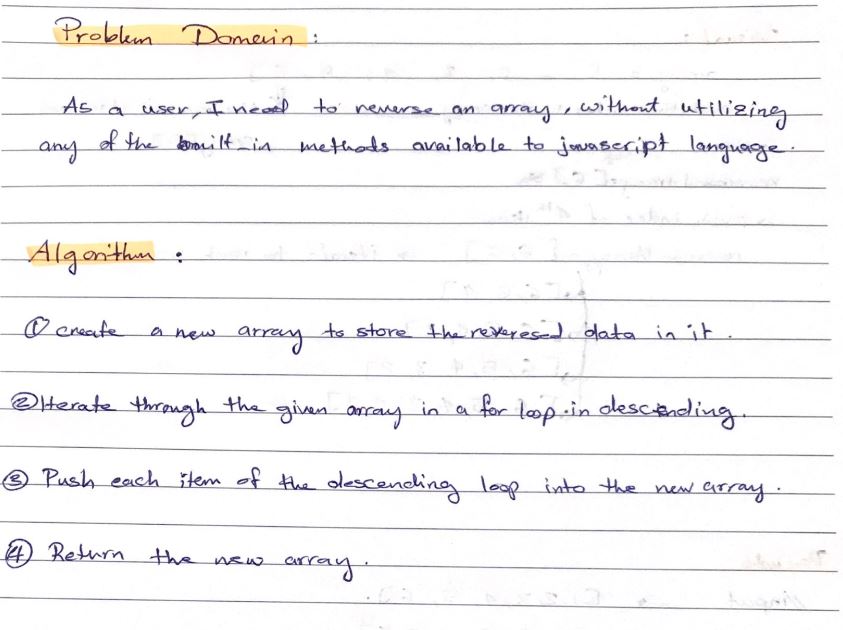 Problem Domain :
As a user, I need to reverse an array, without utilizing
any of the built-in methods available to javascript language.
Algorithm :
① create a new array to store the reveresed data in it.
② Iterate through the given array in a for loop in descending.
③ Push each item of the descending loop into the new array.
④ Return the new array.